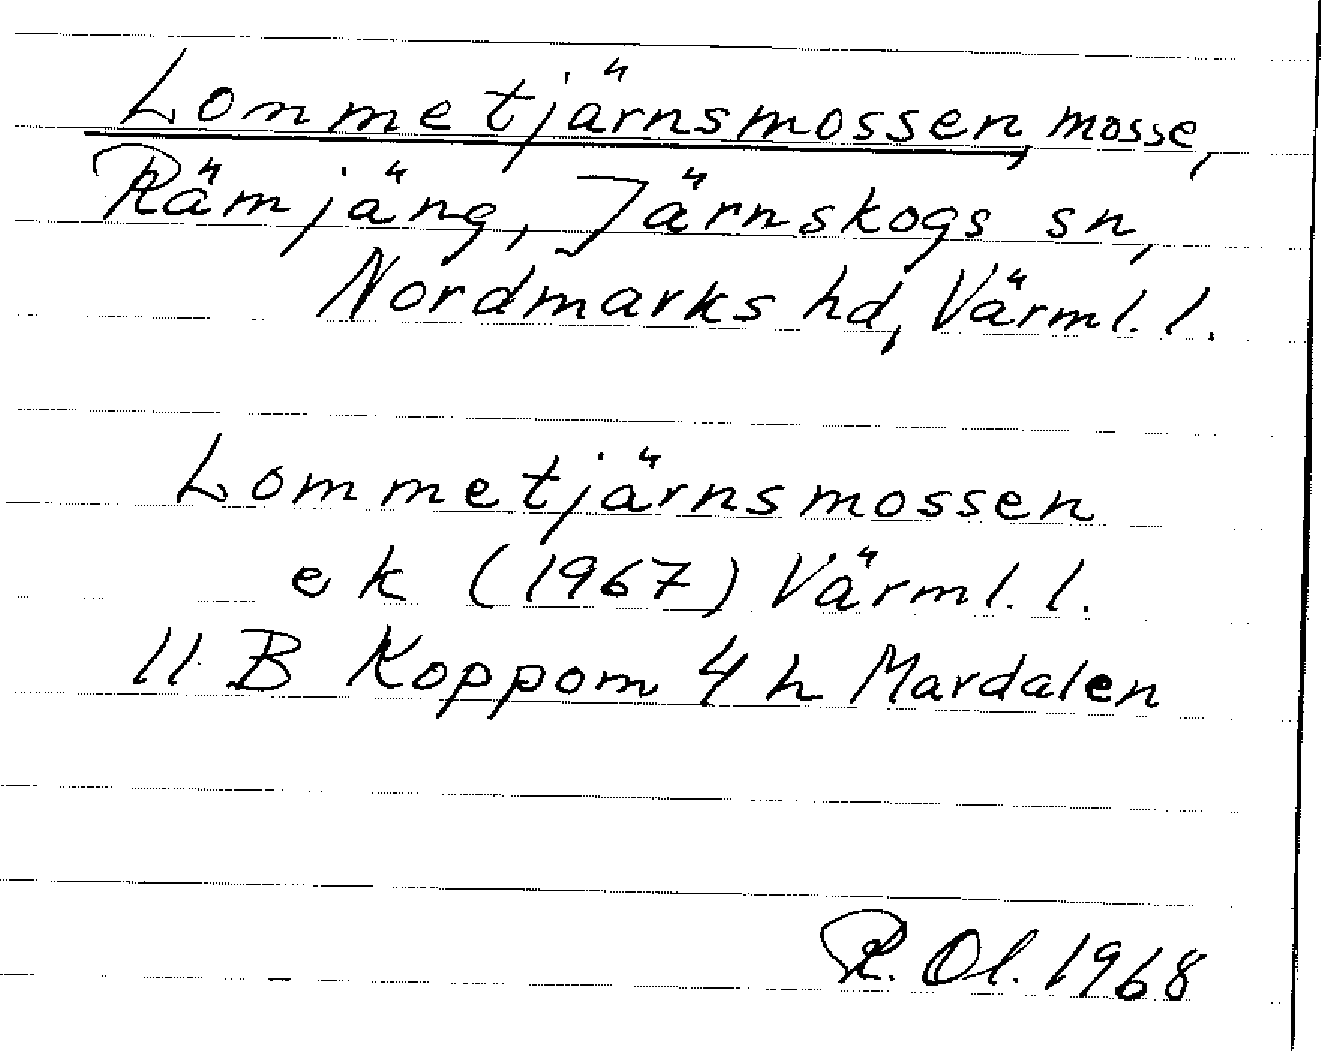 Lommetjärnsmossen, mosse,
Rämjäng, Järnskogs sn,
Nordmarks hd, Värml. l.
Lommetjärnsmossen
ek (1967) Värml. l.
11 B Koppom 4 h Mardalen
R. Ol. 1968